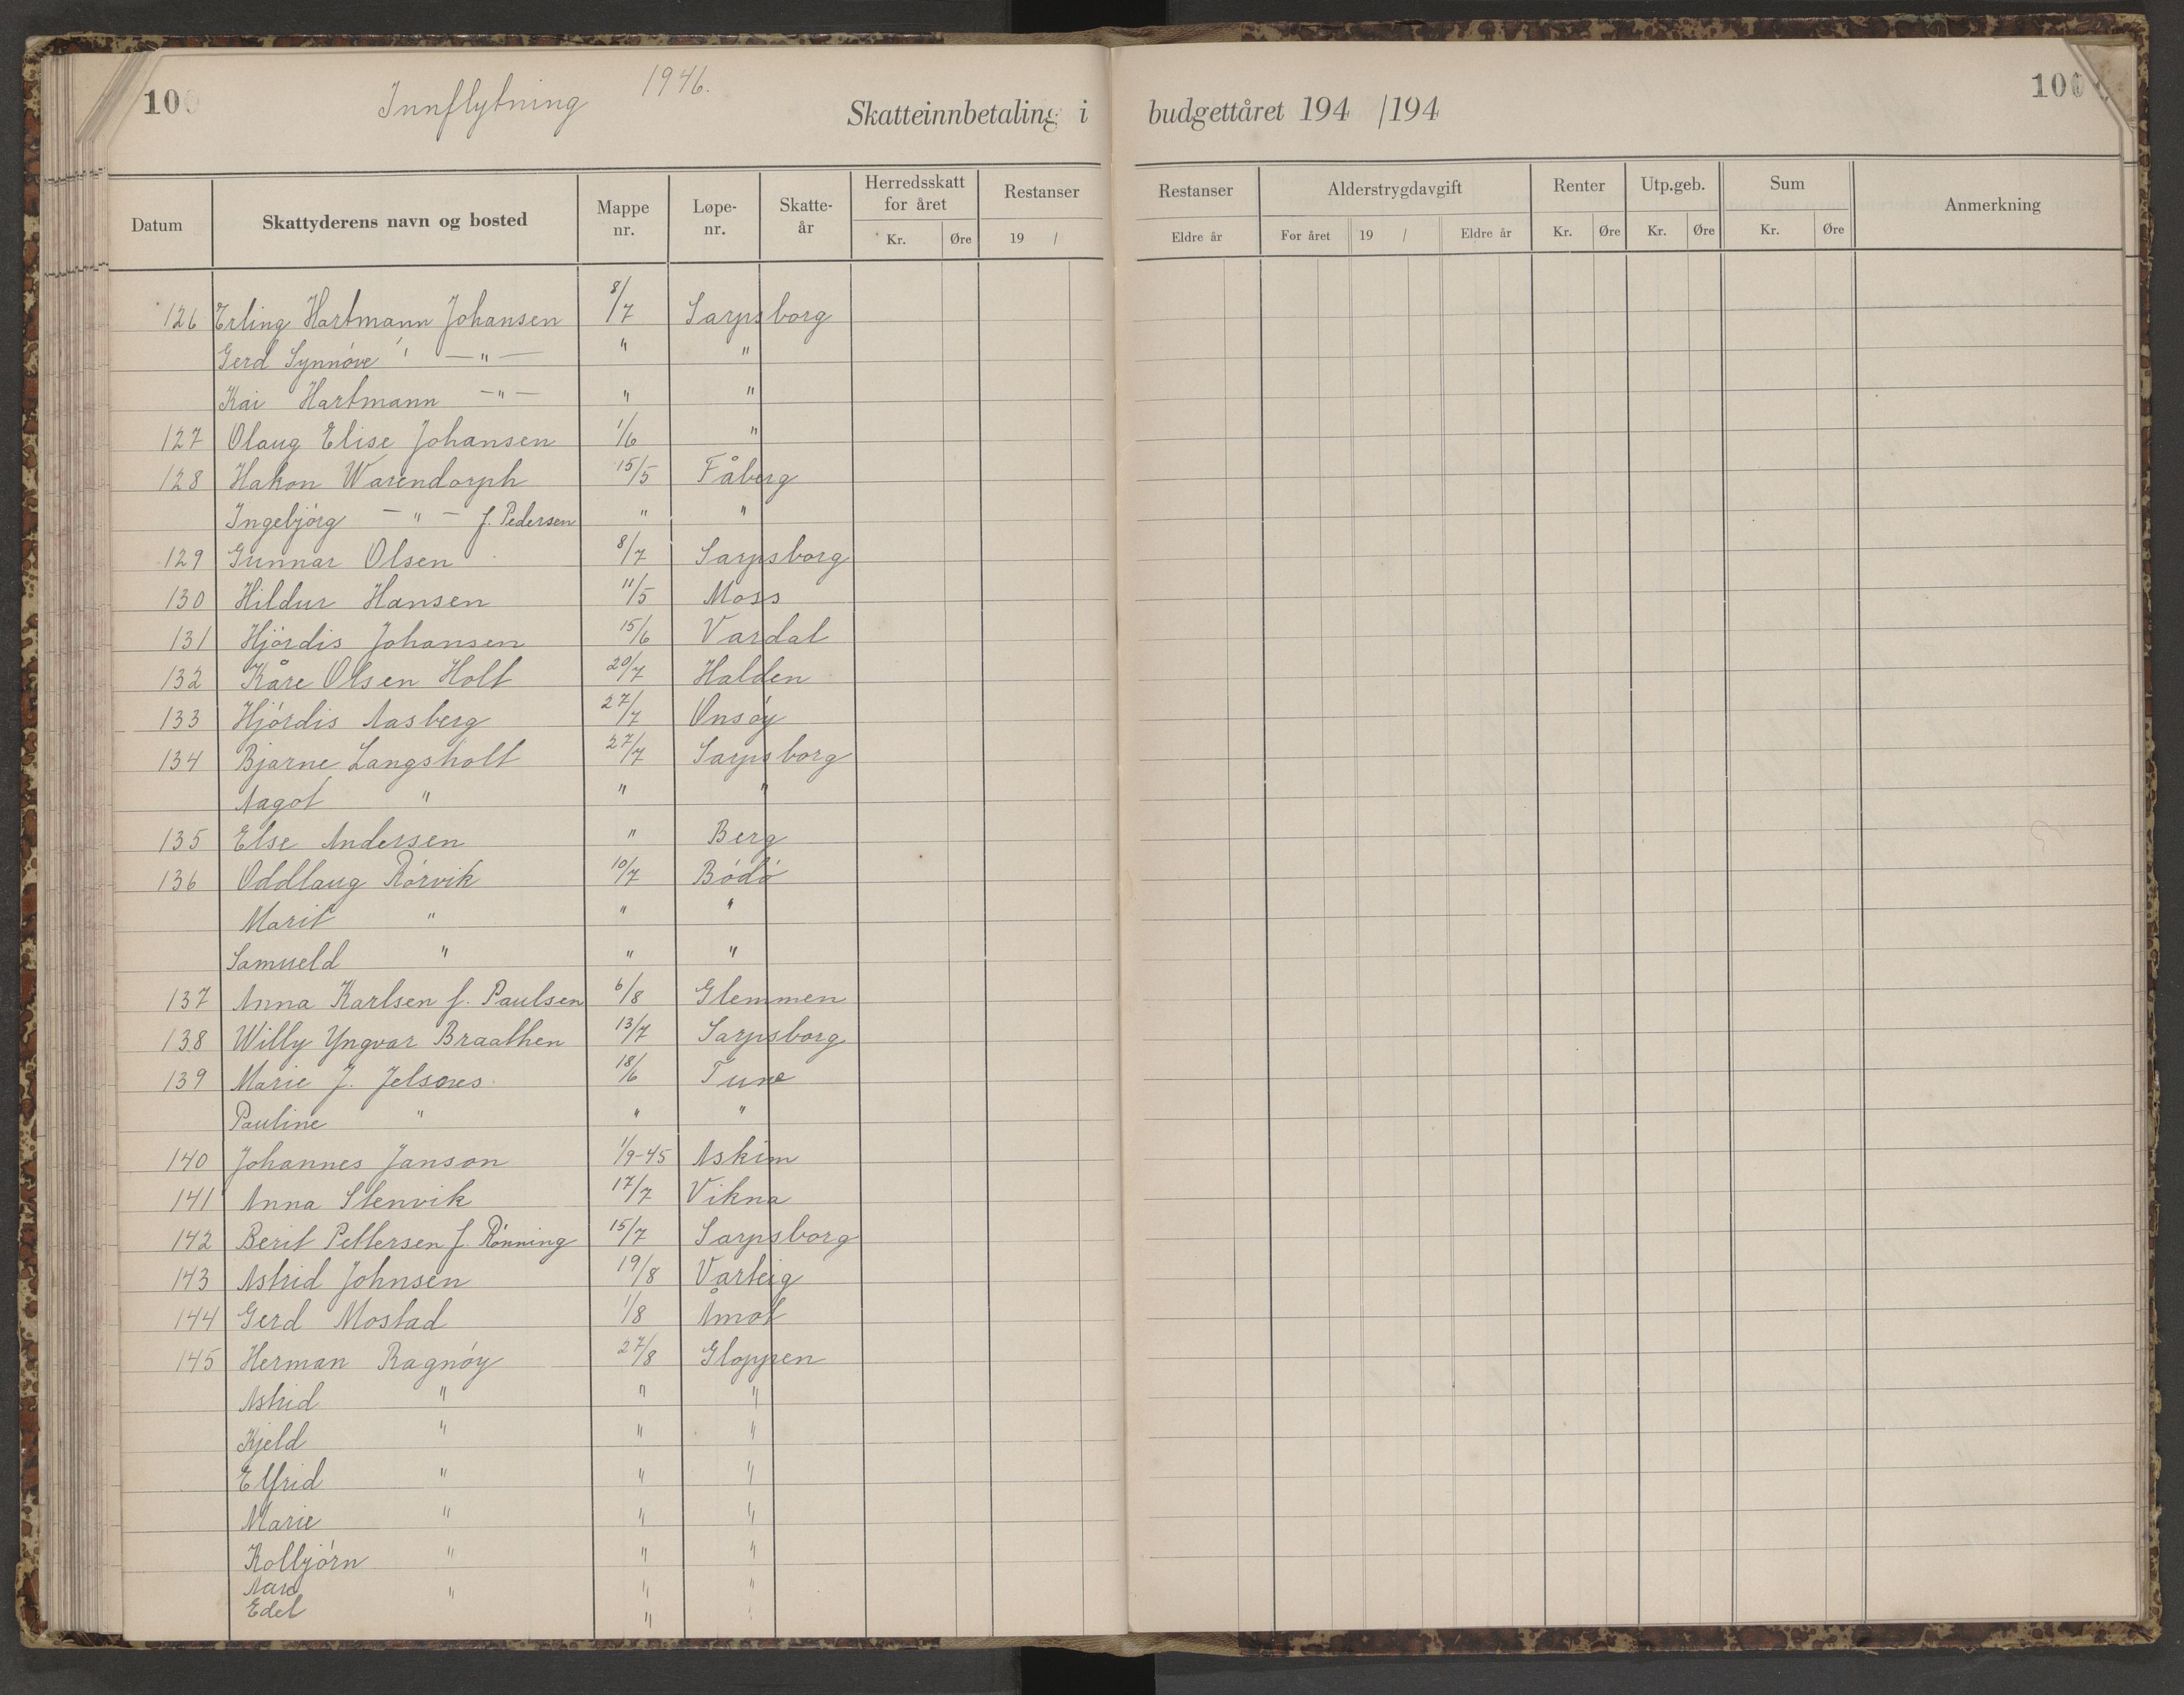 100
Innflytning 1946.
Skatteinnbetaling i budgettåret 194 /194
100
Datum Skattyderens navn og bosted Mappe nr. Løpe-nr. Skatte-år Herredsskatt for året Kr. Øre Restanser 19 / Restanser Eldre år Alderstrygdavgift For året 19 / Eldre år Renter Kr. Øre Utp.geb. Kr. Øre Sum Kr. Øre Anmerkning
126 Erling Hartmann Johansen 8/7 Sarpsborg
Gerd Synnóve —"— " "
Kai Hartmann —"— " "
127 Olaug Elise Johansen 1/6 "
128 Hakon Warendorph 15/5 Fåberg
Ingebjórg —"— f. Pedersen " "
129 Gunnar Olsen 8/7 Sarpsborg
130 Hildur Hansen 11/5 Moss
131 Hjórdis Johansen 15/6 Vardal
132 Kåre Olsen Holt 20/7 Halden
133 Hjórdis Aasberg 27/7 Onsóy
134 Bjarne Langsholt 27/7 Sarpsborg
Aagot " " "
135 Else Andersen " Berg
136 Oddlaug Rórvik 10/7 Bódó
Marit " " "
Samueld " " "
137 Anna Karlsen f. Paulsen 6/8 Glemmen
138 Willy Yngvar Braathen 13/7 Sarpsborg
139 Marie J. Jelsnes 18/6 Tune
Pauline " " "
140 Johannes Janson 1/9-45 Askim
141 Anna Stenvik 17/7 Vikna
142 Berit Pettersen f. Rónning 15/7 Sarpsborg
143 Astrid Johnsen 19/8 Varteig
144 Gerd Mostad 1/8 Åmot
145 Herman Ragnóy 27/8 Gloppen
Astrid " " "
Kjeld " " "
Elfrid " " "
Marie " " "
Kolbjórn " " "
" " "
Edel "